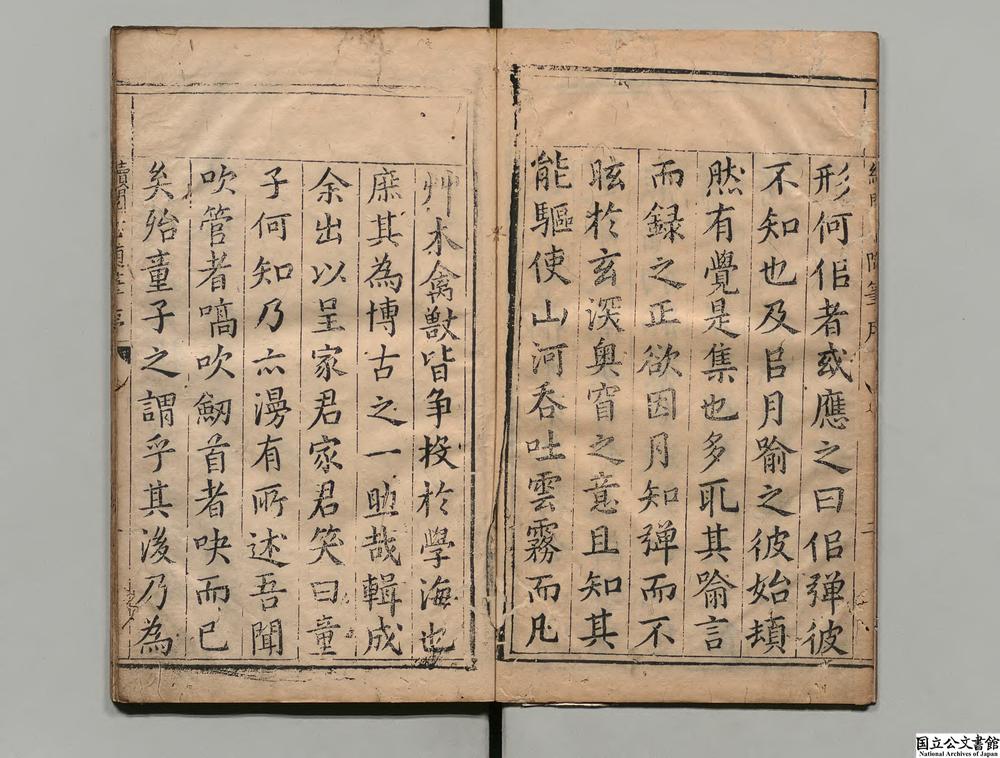 形何佀者或應之曰佀弹彼
不知也及㠯月喻之彼始頓
然有覺是集也多取其喻言
而録之正欲因月知弹而不
眩於玄深奥窅之意且知其
能驅使山河吞吐雲霧而凡
艸木禽獸皆争投於學海也
庶其為博古之一助哉輯成
余出以呈家君家君笑曰童
子何知乃亦漫有所述吾聞
吹管者嗃吹劒首者吷而已
矣殆童子之謂乎其後乃為
国立公文書館
National Archives of Japan